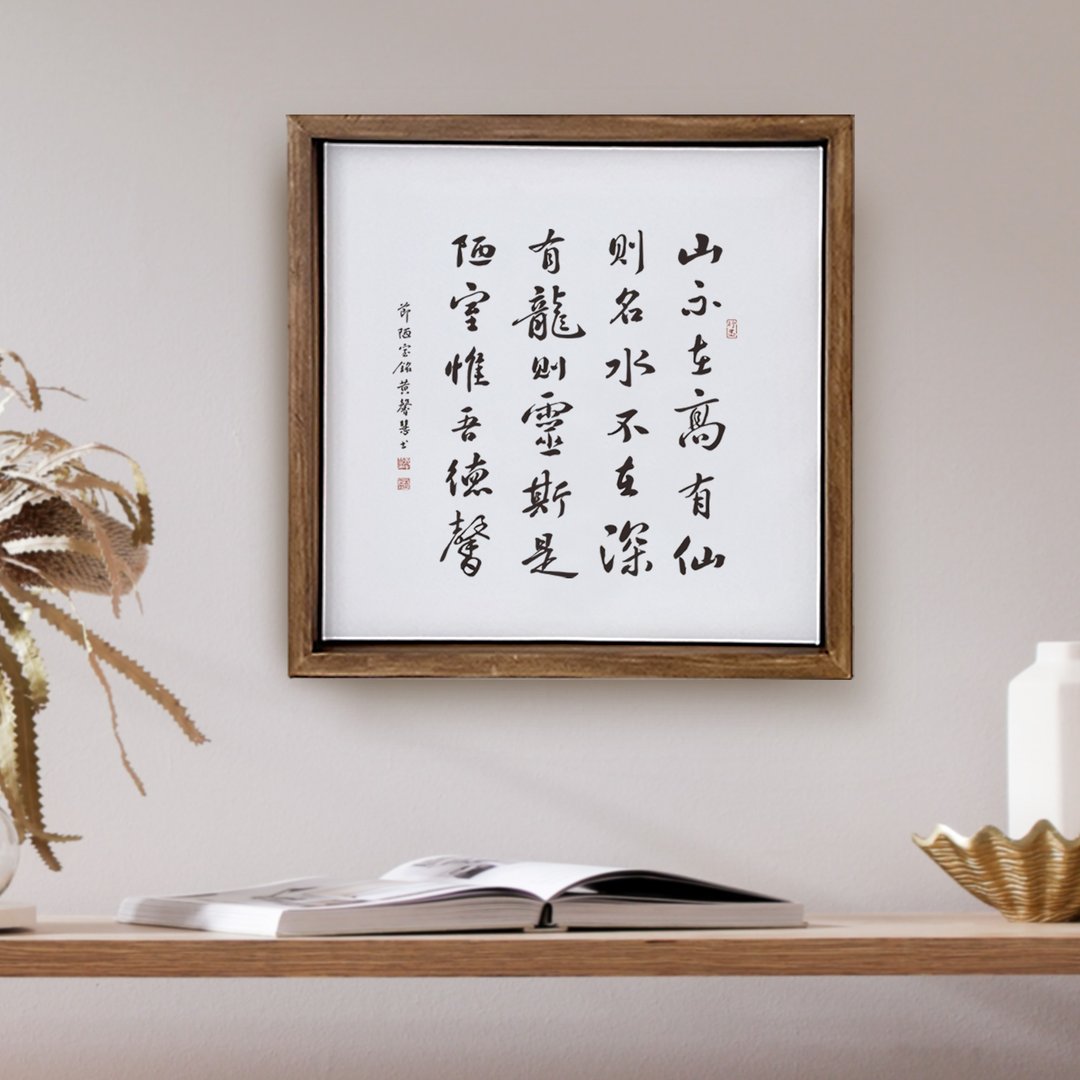 山不在高有仙
则名水不在深
有龍则靈斯是
陋室惟吾德馨
節陋室铭黄馨慧书